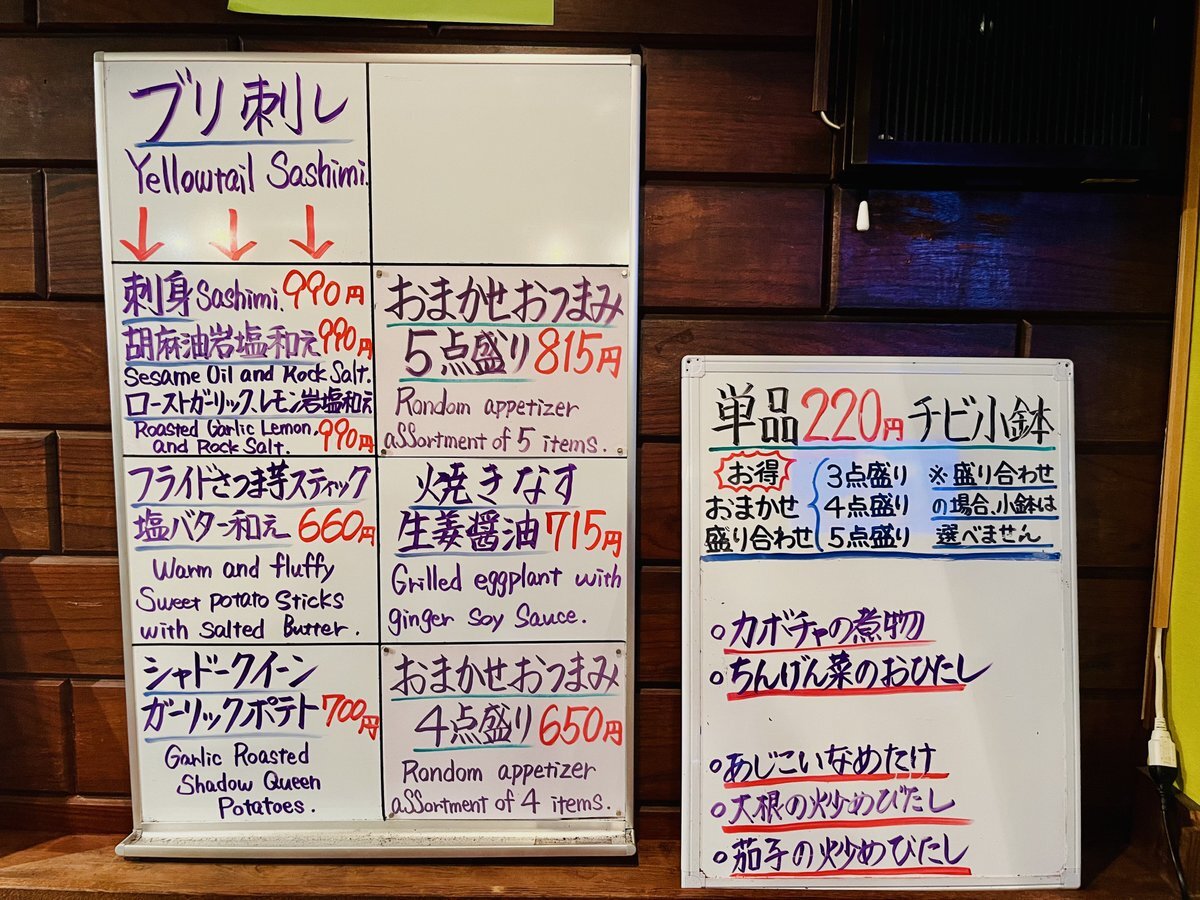 ブリ刺し
Yellowtail Sashimi.
↓ ↓ ↓
刺身 Sashimi. 990円
胡麻油岩塩和え 990円
Sesame Oil and Rock Salt.
ローストガーリック、レモン岩塩和え
Roasted Garlic Lemon,
and Rock Salt. 990円
フライドさつま芋スティック
塩バター和え 660円
Warm and fluffy
Sweet potato Sticks
with Salted Butter.
シャドークイーン
ガーリックポテト 700円
Garlic Roasted
Shadow Queen
Potatoes.
おまかせおつまみ
5点盛り 815円
Random appetizer
assortment of 5 items.
焼きなす
生姜醤油 715円
Grilled eggplant with
ginger Soy Sauce.
おまかせおつまみ
4点盛り 650円
Random appetizer
assortment of 4 items.
単品220円チビ小鉢
お得
おまかせ
盛り合わせ
3点盛り
4点盛り
5点盛り
※盛り合わせ
の場合、小鉢は
選べません
○カボチャの煮物
○ちんげん菜のおひたし
○あじこいなめたけ
○大根の炒めびたし
○茄子の炒めびたし